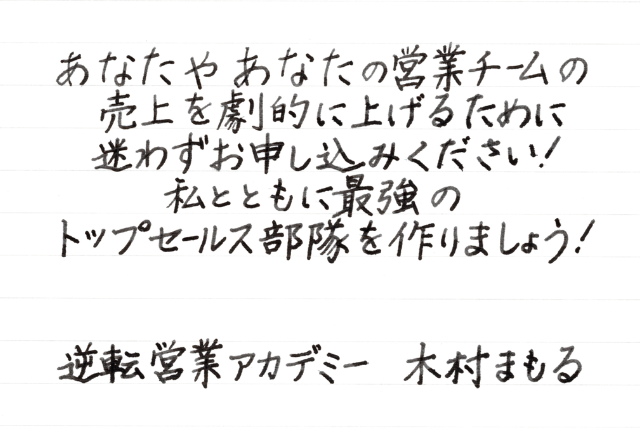 あなたや あなたの営業チームの
売上を劇的に上げるために
迷わずお申し込みください!
私とともに最強の
トップセールス部隊を作りましょう!
逆転営業アカデミー 木村まもる